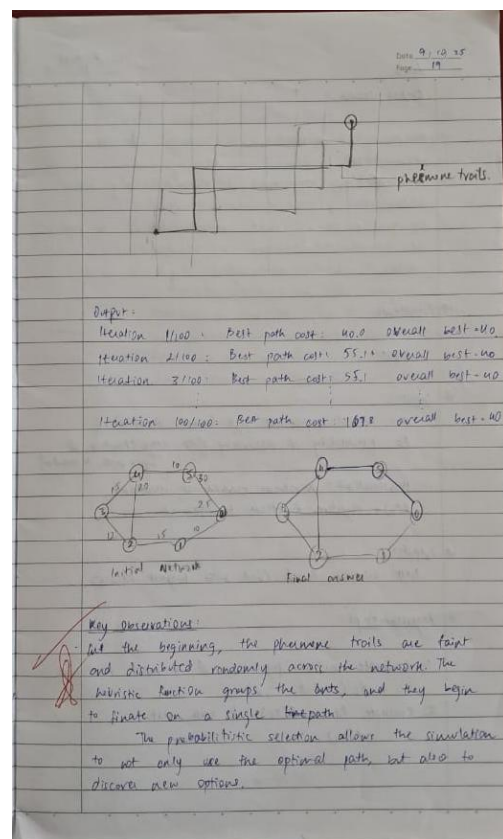 Date 9/12/25
Page 19
pheromone trails.
Output:
Iteration 1/100 : Best path cost: 40.0 overall best = 40
Iteration 2/100 : Best path cost: 55.1 overall best = 40
Iteration 3/100 : Best path cost: 55.1 overall best = 40
Iteration 100/100: Best path cost 167.8 overall best = 40
4 10 5
15 20 30
3 25
12 2 15 1 10
Initial Network
4 5
2
Final answer
Key Observations:
At the beginning, the phermone trails are faint
and distributed randomly across the network. The
heuristic function groups the ants, and they begin
to finate on a single path
The probabilitistic selection allows the simulation
to not only use the optimal path, but also to
discover new options.